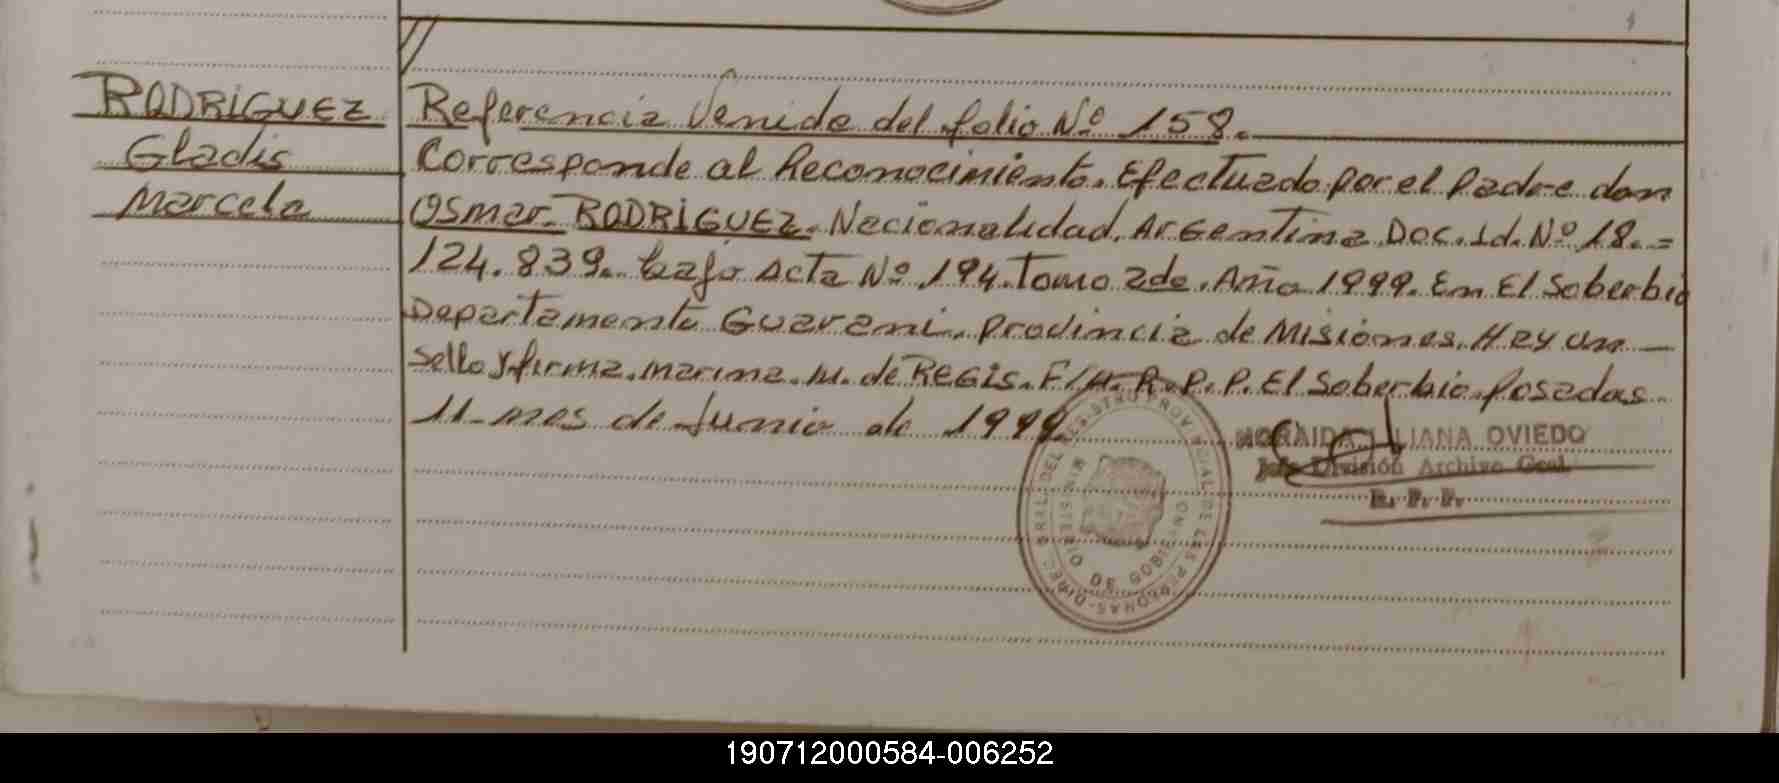 RODRIGUEZ
Gladis
Marcela
Referencia Venida del folio Nº 158.
Corresponde al Reconocimiento. Efectuado por el Padre don
Osmar RODRIGUEZ. Nacionalidad. Argentina. Doc. Id. Nº 18. =
124.839. bajo Acta Nº 194. Tomo 2do. Año 1999. En El Soberbio
Departamento Guarani. Provincia de Misiones. Hay un
sello y firma. Marina. M. de Regis. F/H. R. P. P. El Soberbio. Posadas
11 mes de Junio de 1999
LIANA OVIEDO
Jefe División Archivo Gral.
R. P. P.
MINISTERIO DE GOBIERNO
190712000584-006252